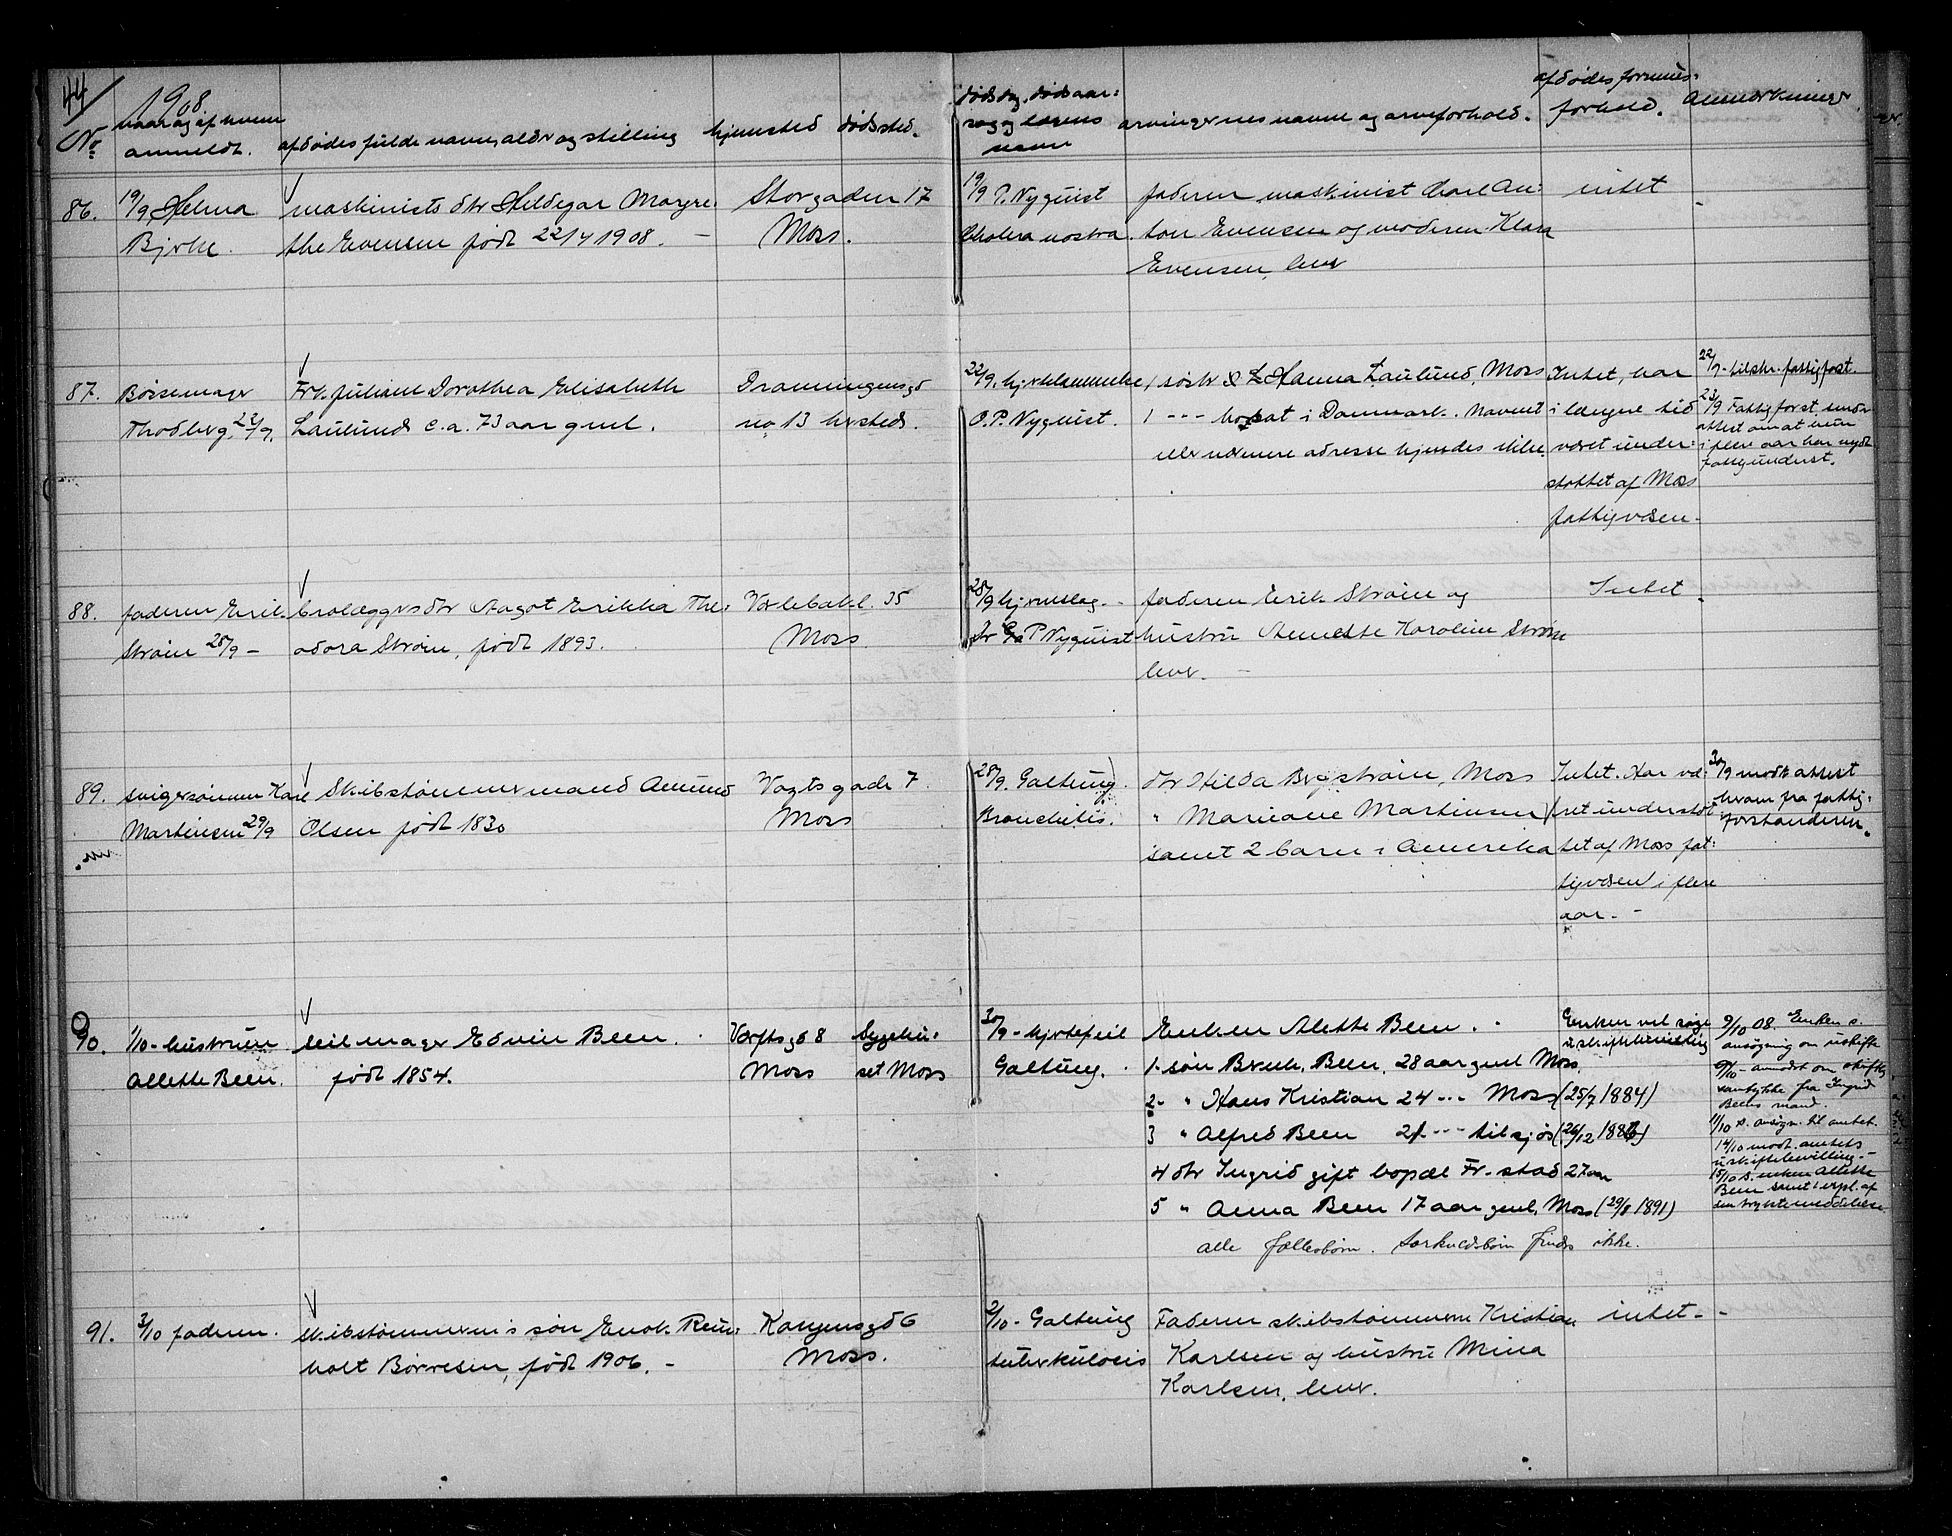 44
1908.
No
naar og af hvem
anmeldt.
afdødes fulde navn, alder og stilling
hjemsted
dødssted.
dødsdag, dødsaar:
sag og lægens
navn
arvingernes navne og arveforhold.
afdødes formues:
forhold.
Anmerkninger
86.
19/9 Helma
Bjerke.
maskinists dtr Hildegar Magre:
the Evensen født 22/4 1908. –
Storgaden 17
Moss.
19/9 P. Nyquist
Cholera nostra.
faderen maskinist Carl An:
ton Evensen og moderen Klara
Evensen, lever
intet
87.
Børsemager
Thodberg 23/9.
Frk. Juliane Dorothea Elisabeth
Laulund c.a. 73 aar gml.
Dronningensgd
no 13 hersteds.
22/9. hjertelammelse
O.P. Nyquist.
1 søster Hanna Laulund, Moss
1 --- bosat i Danmark. Navnet
eller nærmere adresse kjendes ikke.
Intet, har
i længere tid
været under:
støttet af Moss
fattigvæsen.
22/9 - tilskr. fattigforst.
23/9 Fattigforst. sender
attest om at hun
i flere aar har nydt
fattigunderst.
88.
faderen Erik
Strøm 28/9 –
brolæggers dtr Aagot Erikka The:
odora Strøm, født 1893.
Vørlebakk. 35
Moss.
28/9 hjerneslag. -
Dr P Nyquist
faderen Erik Strøm og
hustru Annette Karoline Strøm
lever. –
Intet
89.
svigersønnen Karl
Martinsen 29/9
Skibstømmermand Amund
Olsen født 1830
Vogtsgade 7
Moss
28/9. Galtung.
Bronchitis.
dtr Hilda Bergstrøm, Moss
" Mariane Martinsen
samt 2 barn i Amerika
Intet. Har væ:
ret understøt:
tet af Moss fat:
tigvæsen i flere
aar. –
30/9 modt attest
herom fra fattig:
forstanderen.
90.
1/10 - hustruen
Allette Been.
seilmager Edvin Been.
født 1854.
Værftsgd 8
Moss
Sygehu:
set Moss
30/9 - hjertefeil
Galtung.
Enken Alette Been. -
1. søn Bernh. Been, 28 aar gml Moss.
2 - " Hans Kristian 24 --- Moss (25/7 1884)
3 " Alfred Been 21 --- tilsjøs (26/12 1886)
4 dtr Ingrid gift bopæl Fr.stad 27 aar
5 " Anna Been 17 aar gml, Moss (29/8 1891)
alle fællesbørn. Særkuldsbørn findes ikke.
Enken vil søge
uskiftebevilling
9/10 08. Enken s.
ansøgning om uskifte
9/10 - anmodet om skifte
samtykke fra Ingrid
Beens mand.
11/10 s. ansøgn. til amtet.
14/10 modt. amtets
uskiftebevilling. –
15/10 s. enken Alette
Been samt 1 expl. af
den trykte meddelelse
91.
3/10 faderen.
skibstømmermands søn Enok Rein:
holt Børresen, født 1906. –
Kongensgd 6
Moss.
2/10 - Galtung
tuberkulosis
Faderen skibstømmerm Kristian
Karlsen og hustru Mina
Karlsen, lever.
intet - -